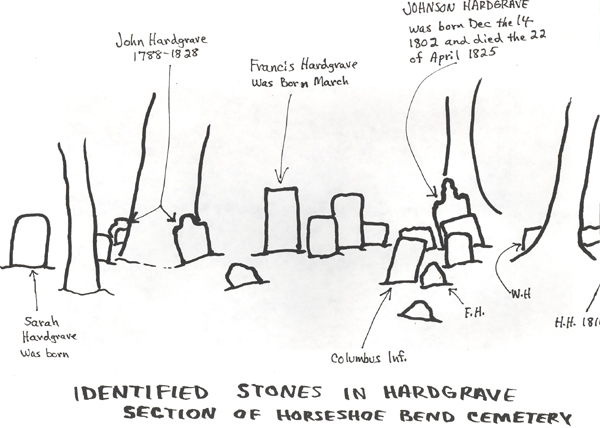 JOHNSON HARDGRAVE
was born Dec the 14
1802 and died the 22
of April 1825
John Hardgrave
1788-1828
Francis Hardgrave
Was Born March
Sarah
Hardgrave
Was born
Columbus Inf.
F.H.
W.H
H.H. 181
IDENTIFIED STONES IN HARDGRAVE
SECTION OF HORSESHOE BEND CEMETERY